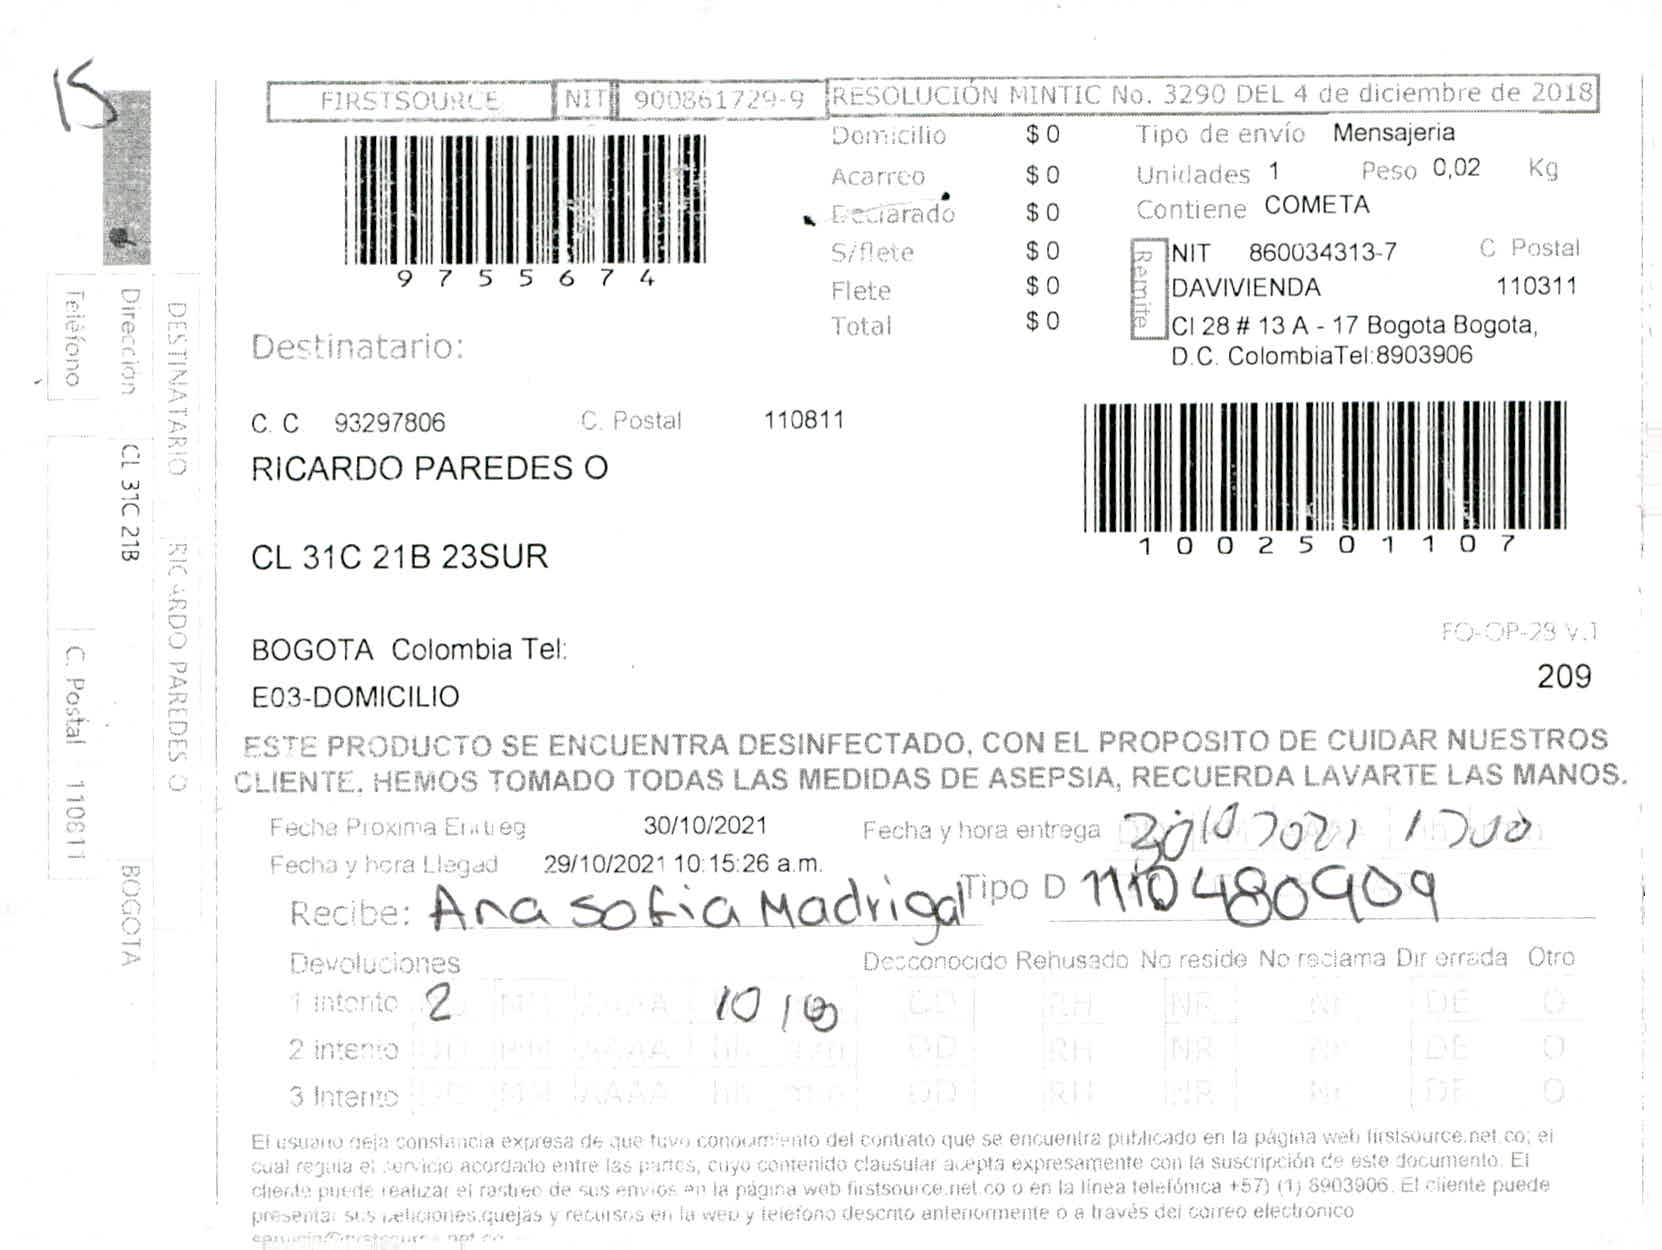 15
FIRSTSOURCE NIT 900861729-9 RESOLUCIÓN MINTIC No. 3290 DEL 4 de diciembre de 2018
9 7 5 5 6 7 4
Domicilio $ 0
Acarreo $ 0
Declarado $ 0
S/flete $ 0
Flete $ 0
Total $ 0
Tipo de envío Mensajeria
Unidades 1 Peso 0,02 Kg
Contiene COMETA
Remite
NIT 860034313-7 C Postal
DAVIVIENDA 110311
Cl 28 # 13 A - 17 Bogota Bogota,
D.C. ColombiaTel:8903906
Destinatario:
C. C 93297806 C. Postal 110811
RICARDO PAREDES O
1 0 0 2 5 0 1 1 0 7
CL 31C 21B 23SUR
BOGOTA Colombia Tel:
E03-DOMICILIO
FO-OP-28 V.1
209
DESTINATARIO RICARDO PAREDES O
Dirección CL 31C 21B BOGOTA
Teléfono C. Postal 110811
ESTE PRODUCTO SE ENCUENTRA DESINFECTADO, CON EL PROPOSITO DE CUIDAR NUESTROS
CLIENTE. HEMOS TOMADO TODAS LAS MEDIDAS DE ASEPSIA, RECUERDA LAVARTE LAS MANOS.
Fecha Proxima Entreg 30/10/2021 Fecha y hora entrega
Fecha y hora Llegad 29/10/2021 10:15:26 a.m.
Recibe: Ana Sofia Madrigal Tipo D 1110480909
Devoluciones Desconocido Rehusado No reside No reclama Dir errada Otro
1 intento 2 10 DD RH NR NR DE O
2 intento DD MM AAAA hh mm DD RH NR NR DE O
3 Intento DD MM AAAA hh mm DD RH NR NR DE O
El usuario deja constancia expresa de que tuvo conocimiento del contrato que se encuentra publicado en la página web firstsource.net.co; el
cual regula el servicio acordado entre las partes, cuyo contenido clausular acepta expresamente con la suscripción de este documento. El
cliente puede realizar el rastreo de sus envios en la página web firstsource.net.co o en la línea telefónica +57) (1) 8903906. El cliente puede
presentar sus peticiones,quejas y recursos en la web y telefono descrito anteriormente o a través del correo electronico